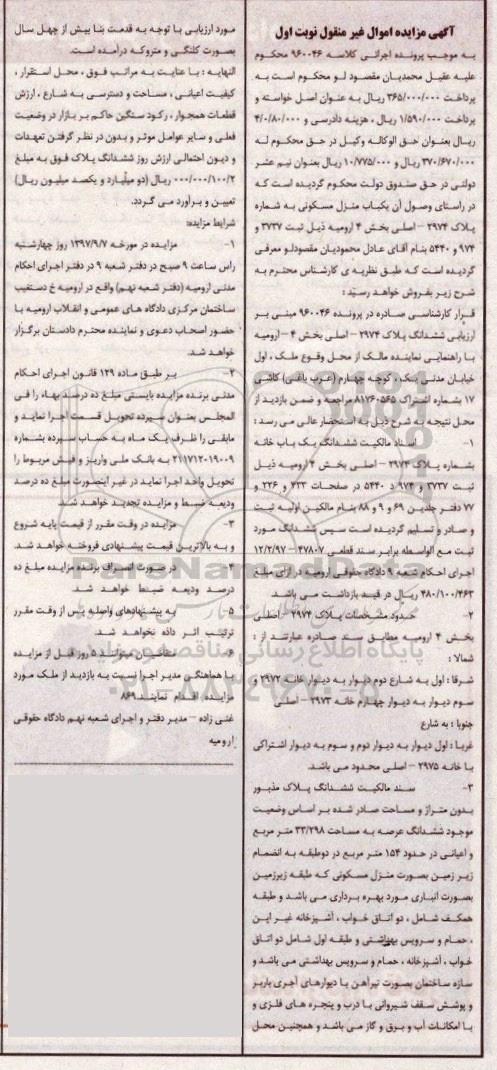 آگهی مزایده اموال غیر منقول نوبت اول
به موجب پرونده اجرائی کلاسه ۹۶۰۰۴۶ محکوم
علیه عقیل محمدیان مقصود لو محکوم است به
پرداخت ۳۶۵/۰۰۰/۰۰۰ ریال به عنوان اصل خواسته و
پرداخت ۱/۵۹۰/۰۰۰ ریال ، هزینه دادرسی و ۴/۰/۸۰/۰۰۰
ریال بعنوان حق الوکاله وکیل در حق محکوم له
۳۷۰/۶۷۰/۰۰۰ ریال و ۱۰/۷۷۵/۰۰۰ ریال بعنوان نیم عشر
دولتی در حق صندوق دولت محکوم گردیده است که
در راستای وصول آن یکباب منزل مسکونی به شماره
پلاک ۲۹۷۴ - اصلی بخش ۴ ارومیه ذیل ثبت ۳۷۳۷ و
۹۷۴ و ۵۴۴۰ بنام آقای عادل محمودیان مقصودلو معرفی
گردیده است که طبق نظریه ی کارشناس محترم به
شرح زیر بفروش خواهد رسید :
قرار کارشناسی صادره در پرونده ۹۶۰۰۴۶ مبنی بر
ارزیابی ششدانگ پلاک ۲۹۷۴ - اصلی بخش ۴ - ارومیه
با راهنمایی نماینده مالک از محل وقوع ملک ، اول
خیابان مدنی یک ، کوچه چهارم (عرب باغی) کاشی
۱۷ بشماره اشتراک ۸۱۷۶۰۵۶۵ مراجعه و ضمن بازدید از
محل نتیجه به شرح ذیل به استحضار عالی می رسد :
۱- اسناد مالکیت ششدانگ یک باب خانه
بشماره پلاک ۲۹۷۴ - اصلی بخش ۴ ارومیه ذیل
ثبت ۳۷۳۷ و ۹۷۴ و ۵۴۴۰ در صفحات ۴۳۳ و ۲۳۶ و
۷۷ دفتر جلدین ۶۹ و ۹ و ۸۸ بنام مالکین اولیه ثبت
و صادر و تسلیم گردیده است سپس ششدانگ مورد
ثبت مع الواسطه برابر سند قطعی ۴۷۸۰۷ - ۱۲/۲/۹۷
اجرای احکام شعبه ۹ دادگاه حقوقی ارومیه در ازای مبلغ
۴۸۰/۱۰۰/۴۶۳ ریال در قید بازداشت می باشد.
۲- حدود مشخصات پلاک ۲۹۷۴ - اصلی
بخش ۴ ارومیه مطابق سند صادره عبارتند از :
شمالا :
شرقا : اول به شارع دوم دیوار به دیوار خانه ۲۹۷۲ و
سوم دیوار به دیوار چهارم خانه ۲۹۷۳ - اصلی
جنوبا : به شارع
غربا : اول دیوار به دیوار دوم و سوم به دیوار اشتراکی
با خانه ۲۹۷۵ - اصلی محدود می باشد.
۳- سند مالکیت ششدانگ پلاک مذبور
بدون متراژ و مساحت صادر شده بر اساس وضعیت
موجود ششدانگ عرصه به مساحت ۳۳/۲۹۸ متر مربع
و اعیانی در حدود ۱۵۴ متر مربع در دوطبقه به انضمام
زیر زمین بصورت منزل مسکونی که طبقه زیرزمین
بصورت انباری مورد بهره برداری می باشد و طبقه
همکف شامل ، دو اتاق خواب ، آشپزخانه غیر اپن
، حمام و سرویس بهداشتی و طبقه اول شامل دو اتاق
خواب ، آشپزخانه ، حمام و سرویس بهداشتی می باشد و
سازه ساختمان بصورت تیرآهن با دیوارهای آجری باربر
و پوشش سقف شیروانی با درب و پنجره های فلزی و
با امکانات آب و برق و گاز می باشد و همچنین محل
مورد ارزیابی با توجه به قدمت بنا بیش از چهل سال
بصورت کلنگی و متروکه درآمده است.
النهایه : با عنایت به مراتب فوق ، محل استقرار ،
کیفیت اعیانی ، مساحت و دسترسی به شارع ، ارزش
قطعات همجوار ، رکود سنگین حاکم بر بازار در وضعیت
فعلی و سایر عوامل موثر و بدون در نظر گرفتن تعهدات
و دیون احتمالی ارزش روز ششدانگ پلاک فوق به مبلغ
۰۰۰/۰۰۰/۱۰۰/۲ ریال (دو میلیارد و یکصد میلیون ریال)
تعیین و برآورد می گردد.
شرایط مزایده:
۱- مزایده در مورخه ۱۳۹۷/۹/۷ روز چهارشنبه
راس ساعت ۹ صبح در دفتر شعبه ۹ در دفتر اجرای احکام
مدنی ارومیه (دفتر شعبه نهم) واقع در ارومیه خ دستغیب
ساختمان مرکزی دادگاه های عمومی و انقلاب ارومیه با
حضور اصحاب دعوی و نماینده محترم دادستان برگزار
خواهد شد.
۲- بر طبق ماده ۱۲۹ قانون اجرای احکام
مدنی برنده مزایده بایستی مبلغ ده درصد بهاء را فی
المجلس بعنوان سپرده تحویل قسمت اجرا نماید و
مابقی را ظرف یک ماه به حساب سپرده بشماره
۲۱۱۷۱۲۰۱۹۰۰۹ به بانک ملی واریز و فیش مربوط را
تحویل واحد اجرا نماید در غیر اینصورت مبلغ ده درصد
ودیعه ضبط و مزایده تجدید خواهد شد.
۳- مزایده در وقت مقرر از قیمت پایه شروع
و به بالاترین قیمت پیشنهادی فروخته خواهد شد.
۴- در صورت انصراف برنده مزایده مبلغ ده
درصد ودیعه ضبط خواهد شد.
۵- به پیشنهادهای واصله پس از وقت مقرر
ترتیب اثر داده نخواهد شد.
۶- متقاضیان میتوانند ۵ روز قبل از مزایده
با هماهنگی مدیر اجرا نسبت به بازدید از ملک مورد
مزایده اقدام نمایند. ۸۶۹
غنی زاده - مدیر دفتر و اجرای شعبه نهم دادگاه حقوقی
ارومیه
ParsNamadData
پایگاه اطلاع رسانی مناقصه و مزایده
۰۲۱-۸۸۳۴۹۶۷۰-۵